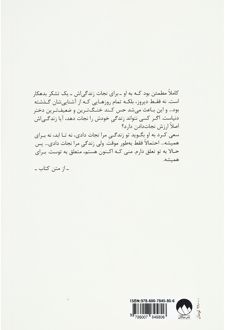 کاملاً مطمئن بود که به او ـ برای نجات زندگی‌اش ـ یک تشکر بدهکار
است. نه فقط دیروز، بلکه تمام روزهایی که از آشنایی‌شان گذشته
بود... و این باعث می‌شد حس کند خنگ‌ترین و ضعیف‌ترین دختر
دنیاست. اگر کسی نتواند زندگی خودش را نجات دهد، آیا زندگی‌اش
اصلاً ارزش نجات‌دادن دارد؟
سعی کرد به او بگوید تو زندگی مرا نجات دادی، نه تا ابد، نه برای
همیشه... احتمالاً فقط به‌طور موقت. ولی زندگی مرا نجات دادی... پس
حالا به تو تعلق دارم. منی که اکنون هستم، متعلق به توست. برای
همیشه.
ـ از متن کتاب ـ
ISBN: 978-600-7845-80-6